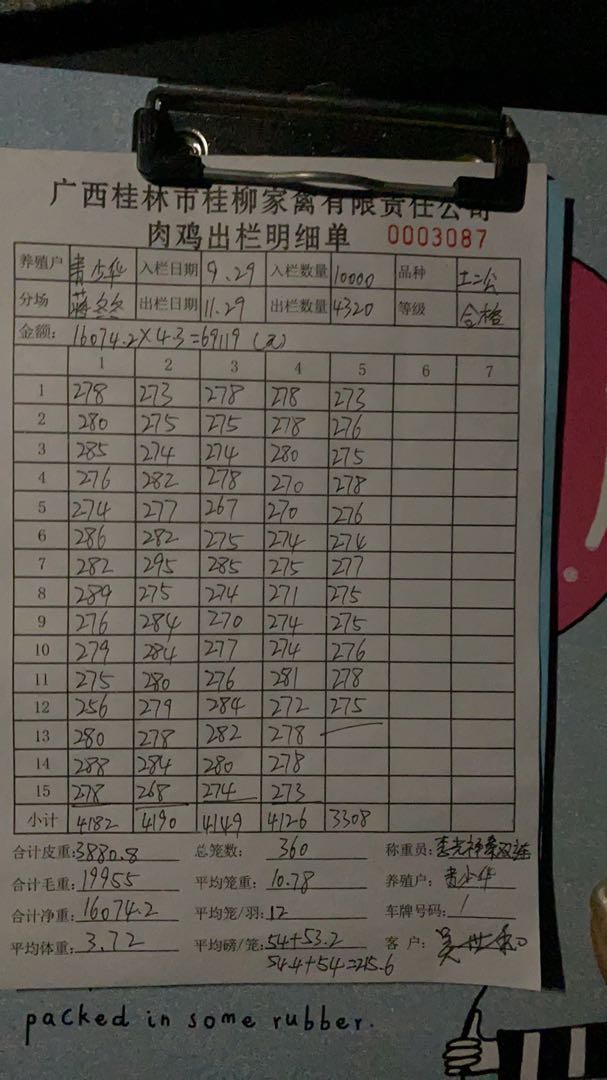 广西桂林市桂柳家禽有限责任公司
肉鸡出栏明细单 0003087
养殖户 青少华 入栏日期 9.29 入栏数量 10000 品种 土二公
分场 蒋冬冬 出栏日期 11.29 出栏数量 4320 等级 合格
金额: 16074.2×4.3=69119(元)
1 2 3 4 5 6 7
1 278 273 278 278 273
2 280 275 275 278 276
3 285 274 274 280 275
4 276 282 278 270 278
5 274 277 267 270 276
6 286 282 275 274 274
7 282 295 285 275 277
8 289 275 274 271 275
9 276 284 270 274 275
10 279 284 277 274 276
11 275 280 276 281 278
12 256 279 284 272 275
13 280 278 282 278
14 288 284 280 278
15 278 268 274 273
小计 4182 4190 4149 4126 3308
合计皮重: 3880.8 总笼数: 360 称重员:
合计毛重: 19955 平均笼重: 10.78 养殖户: 青少华
合计净重: 16074.2 平均笼/羽: 12 车牌号码: 1
平均体重: 3.72 平均磅/笼: 54+53.2 客户:
54.4+54=215.6
packed in some rubber.